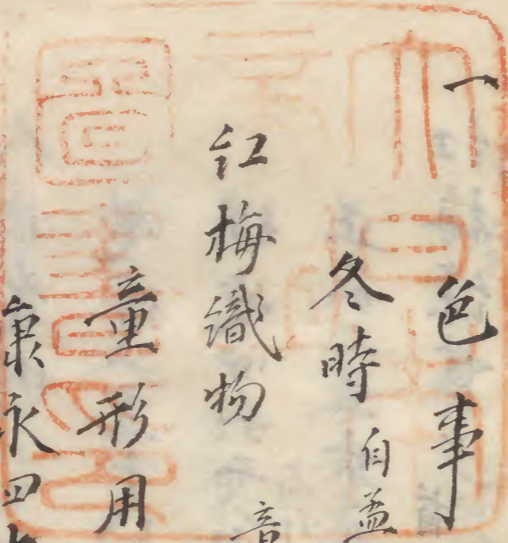 一 色事
冬時 自孟
紅梅織物
童形用
康永四